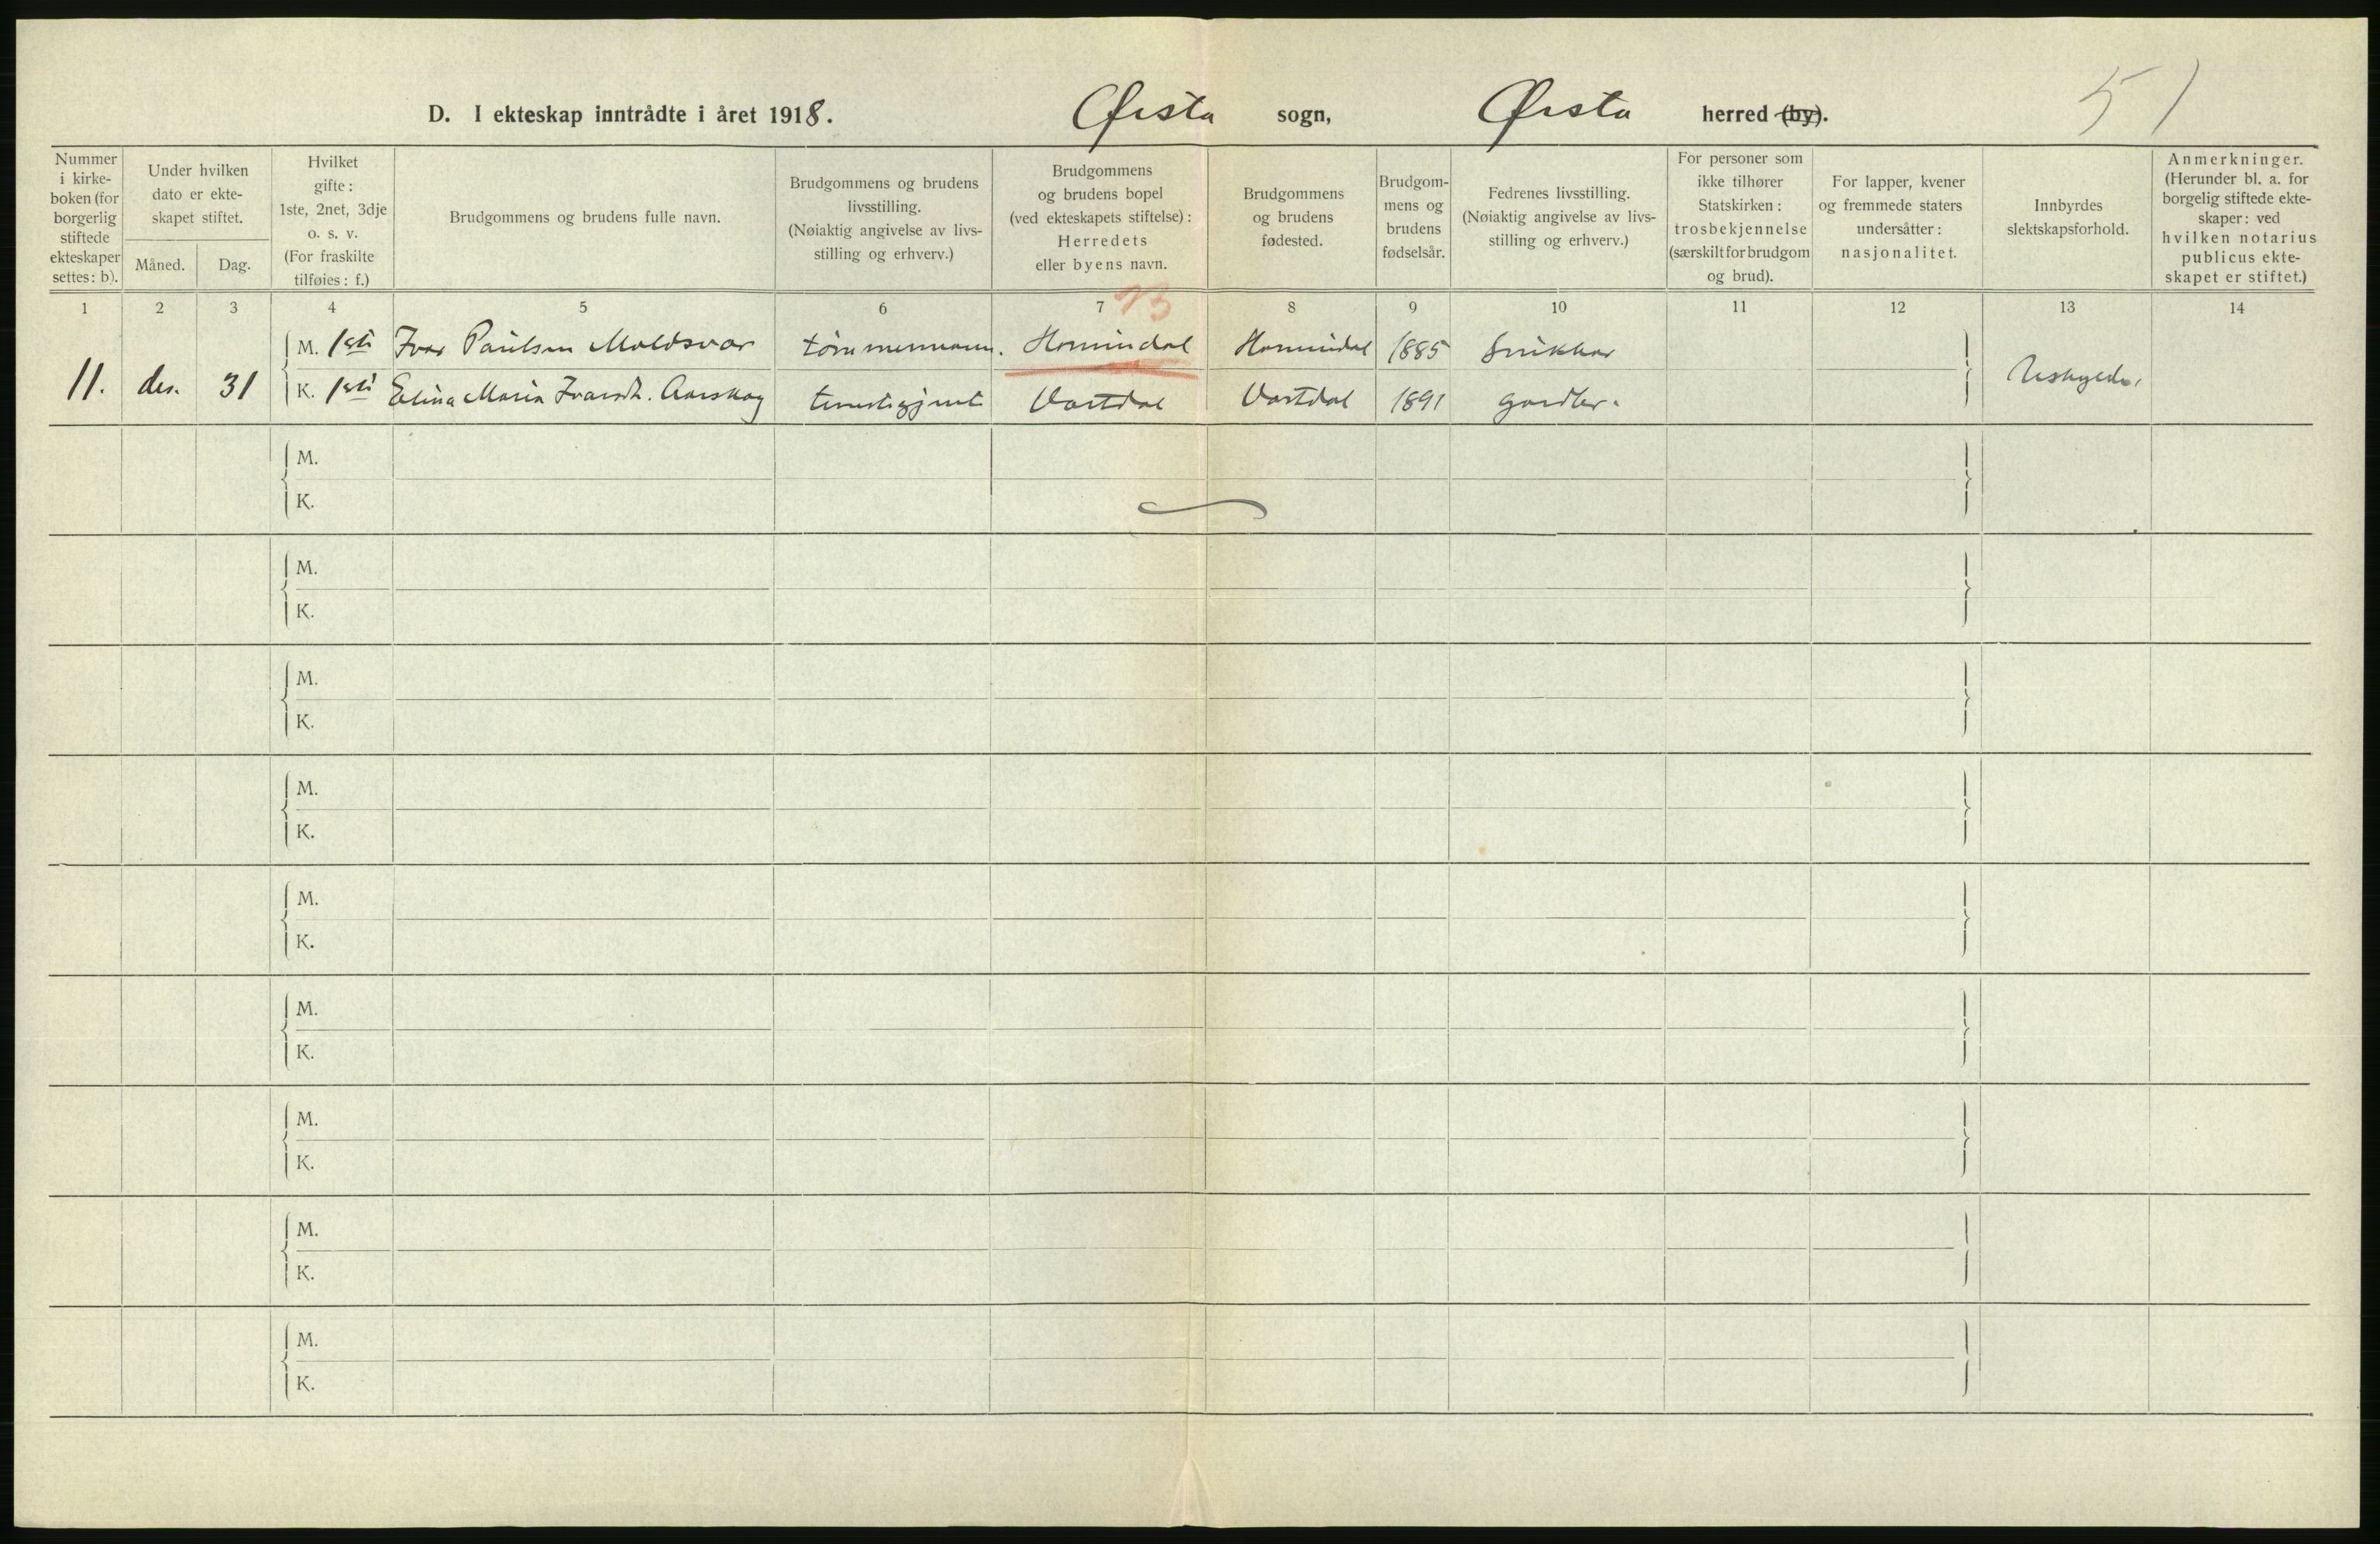 D. I ekteskap inntrådte i året 1918. Ørsta sogn, Ørsta herred (by). 51
Nummer i kirke-boken (for borgerlig stiftede ekteskaper settes: b).
Under hvilken dato er ekte-skapet stiftet.
Måned. Dag.
Hvilket gifte: 1ste, 2net, 3dje o. s. v. (For fraskilte tilføies: f.)
Brudgommens og brudens fulle navn.
Brudgommens og brudens livsstilling. (Nøiaktig angivelse av livs-stilling og erhverv.)
Brudgommens og brudens bopel (ved ekteskapets stiftelse): Herredets eller byens navn.
Brudgommens og brudens fødested.
Brudgom-mens og brudens fødselsår.
Fedrenes livsstilling. (Nøiaktig angivelse av livs-stilling og erhverv.)
For personer som ikke tilhører Statskirken: trosbekjennelse (særskilt for brudgom og brud).
For lapper, kvener og fremmede staters undersåtter: nasjonalitet.
Innbyrdes slektskapsforhold.
Anmerkninger. (Herunder bl. a. for borgelig stiftede ekte-skaper: ved hvilken notarius publicus ekte-skapet er stiftet.)
1 2 3 4 5 6 7 8 9 10 11 12 13 14
13
M. 1ste Ivar Paulsen Moldsvor tømmermann. Hornindal Hornindal 1885 Snikkar
11. des. 31 K. 1ste Elina Maria Ivarsdt. Aarskog tenestegjente Vartdal Vartdal 1891 gardbr. Uskylde.
M.
K.
M.
K.
M.
K.
M.
K.
M.
K.
M.
K.
M.
K.
M.
K.
M.
K.